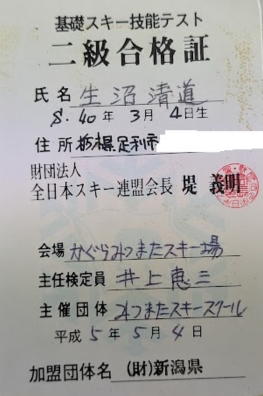 基礎スキー技能テスト
二級合格証
氏名 生沼清道
S.40年3月4日生
住所 栃木県足利市
財団法人
全日本スキー連盟会長 堤 義明
会場 かぐらみつまたスキー場
主任検定員 井上恵三
主催団体 みつまたスキースクール
平成5年5月4日
加盟団体名 (財)新潟県